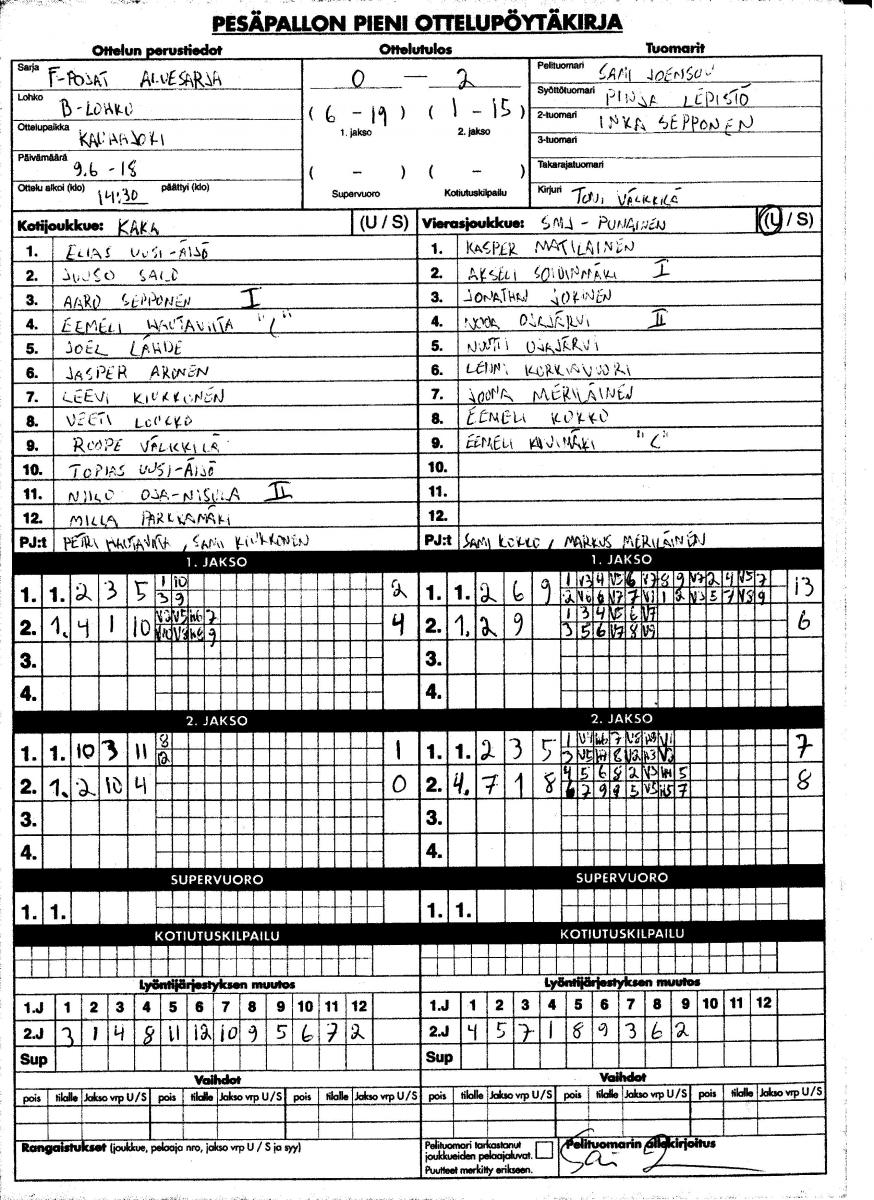 PESÄPALLON PIENI OTTELUPÖYTÄKIRJA
Ottelun perustiedot
Sarja F-POJAT ALUESARJA
Lohko B-LOHKO
Ottelupaikka KAUHAJOKI
Päivämäärä 9.6 -18
Ottelu alkoi (klo) 14:30 päättyi (klo)
Ottelutulos
0 — 2
( 6 - 19 ) ( 1 - 15 )
1. jakso 2. jakso
( - ) ( - )
Supervuoro Kotiutuskilpailu
Tuomarit
Pelituomari SAMI JOENSUU
Syöttötuomari PINJA LEPISTÖ
2-tuomari INKA SEPPONEN
3-tuomari
Takarajatuomari
Kirjuri TONI VÄLKKILÄ
Kotijoukkue: KAKA (U / S)
1. ELIAS UUSI-ÄIJÖ
2. JUUSO SALO
3. AARO SEPPONEN I
4. EEMELI HAUTAVIITA "C"
5. JOEL LÄHDE
6. JASPER ARONEN
7. LEEVI KIUKKONEN
8. VEETI LUOKKO
9. ROOPE VÄLKKILÄ
10. TOPIAS UUSI-ÄIJÖ
11. NIILO OJA-NISULA II
12. MILLA PARKKAMÄKI
PJ:t PETRI HAUTAVIITA, SAMI KIUKKONEN
Vierasjoukkue: SMJ - PUNAINEN (U / S)
1. KASPER MATILAINEN
2. AKSELI SOIDINMÄKI I
3. JONATHAN JOKINEN
4. NOOA OJAJÄRVI II
5. NUUTTI OJAJÄRVI
6. LENNI KORKIAVUORI
7. JOONA MERILÄINEN
8. EEMELI KOKKO
9. EEMELI KIVIMÄKI "C"
10.
11.
12.
PJ:t SAMI KOKKO, MARKUS MERILÄINEN
1. JAKSO
1. 1. 2 3 5 1 10 2
3 9
2. 1. 4 1 10 4
3.
4.
1. JAKSO
1. 1. 2 6 9 1 V3 4 V5 6 V7 8 9 V7 2 4 V5 7 13
2 V6 6 V7 7 V1 1 2 V3 5 7 V8 9
2. 1. 2 9 1 3 4 V5 6 V7 6
3 5 6 V7 8 V9
3.
4.
2. JAKSO
1. 1. 10 3 11 8 1
12
2. 1. 2 10 4 0
3.
4.
2. JAKSO
1. 1. 2 3 5 7
2. 4. 7 1 8 4 5 6 8 2 V3 5 8
6 7 9 9 5 V5 7
3.
4.
SUPERVUORO
1. 1.
SUPERVUORO
1. 1.
KOTIUTUSKILPAILU
KOTIUTUSKILPAILU
Lyöntijärjestyksen muutos
1.J 1 2 3 4 5 6 7 8 9 10 11 12
2.J 3 1 4 8 11 12 10 9 5 6 7 2
Sup
Lyöntijärjestyksen muutos
1.J 1 2 3 4 5 6 7 8 9 10 11 12
2.J 4 5 7 1 8 9 3 6 2
Sup
Vaihdot
pois tilalle Jakso vrp U/S pois tilalle Jakso vrp U/S pois tilalle Jakso vrp U/S
Vaihdot
pois tilalle Jakso vrp U/S pois tilalle Jakso vrp U/S pois tilalle Jakso vrp U/S
Rangaistukset (joukkue, pelaaja nro, jakso vrp U / S ja syy)
Pelituomari tarkastanut
joukkueiden pelaajaluvat.
Puutteet merkitty erikseen.
Pelituomarin allekirjoitus